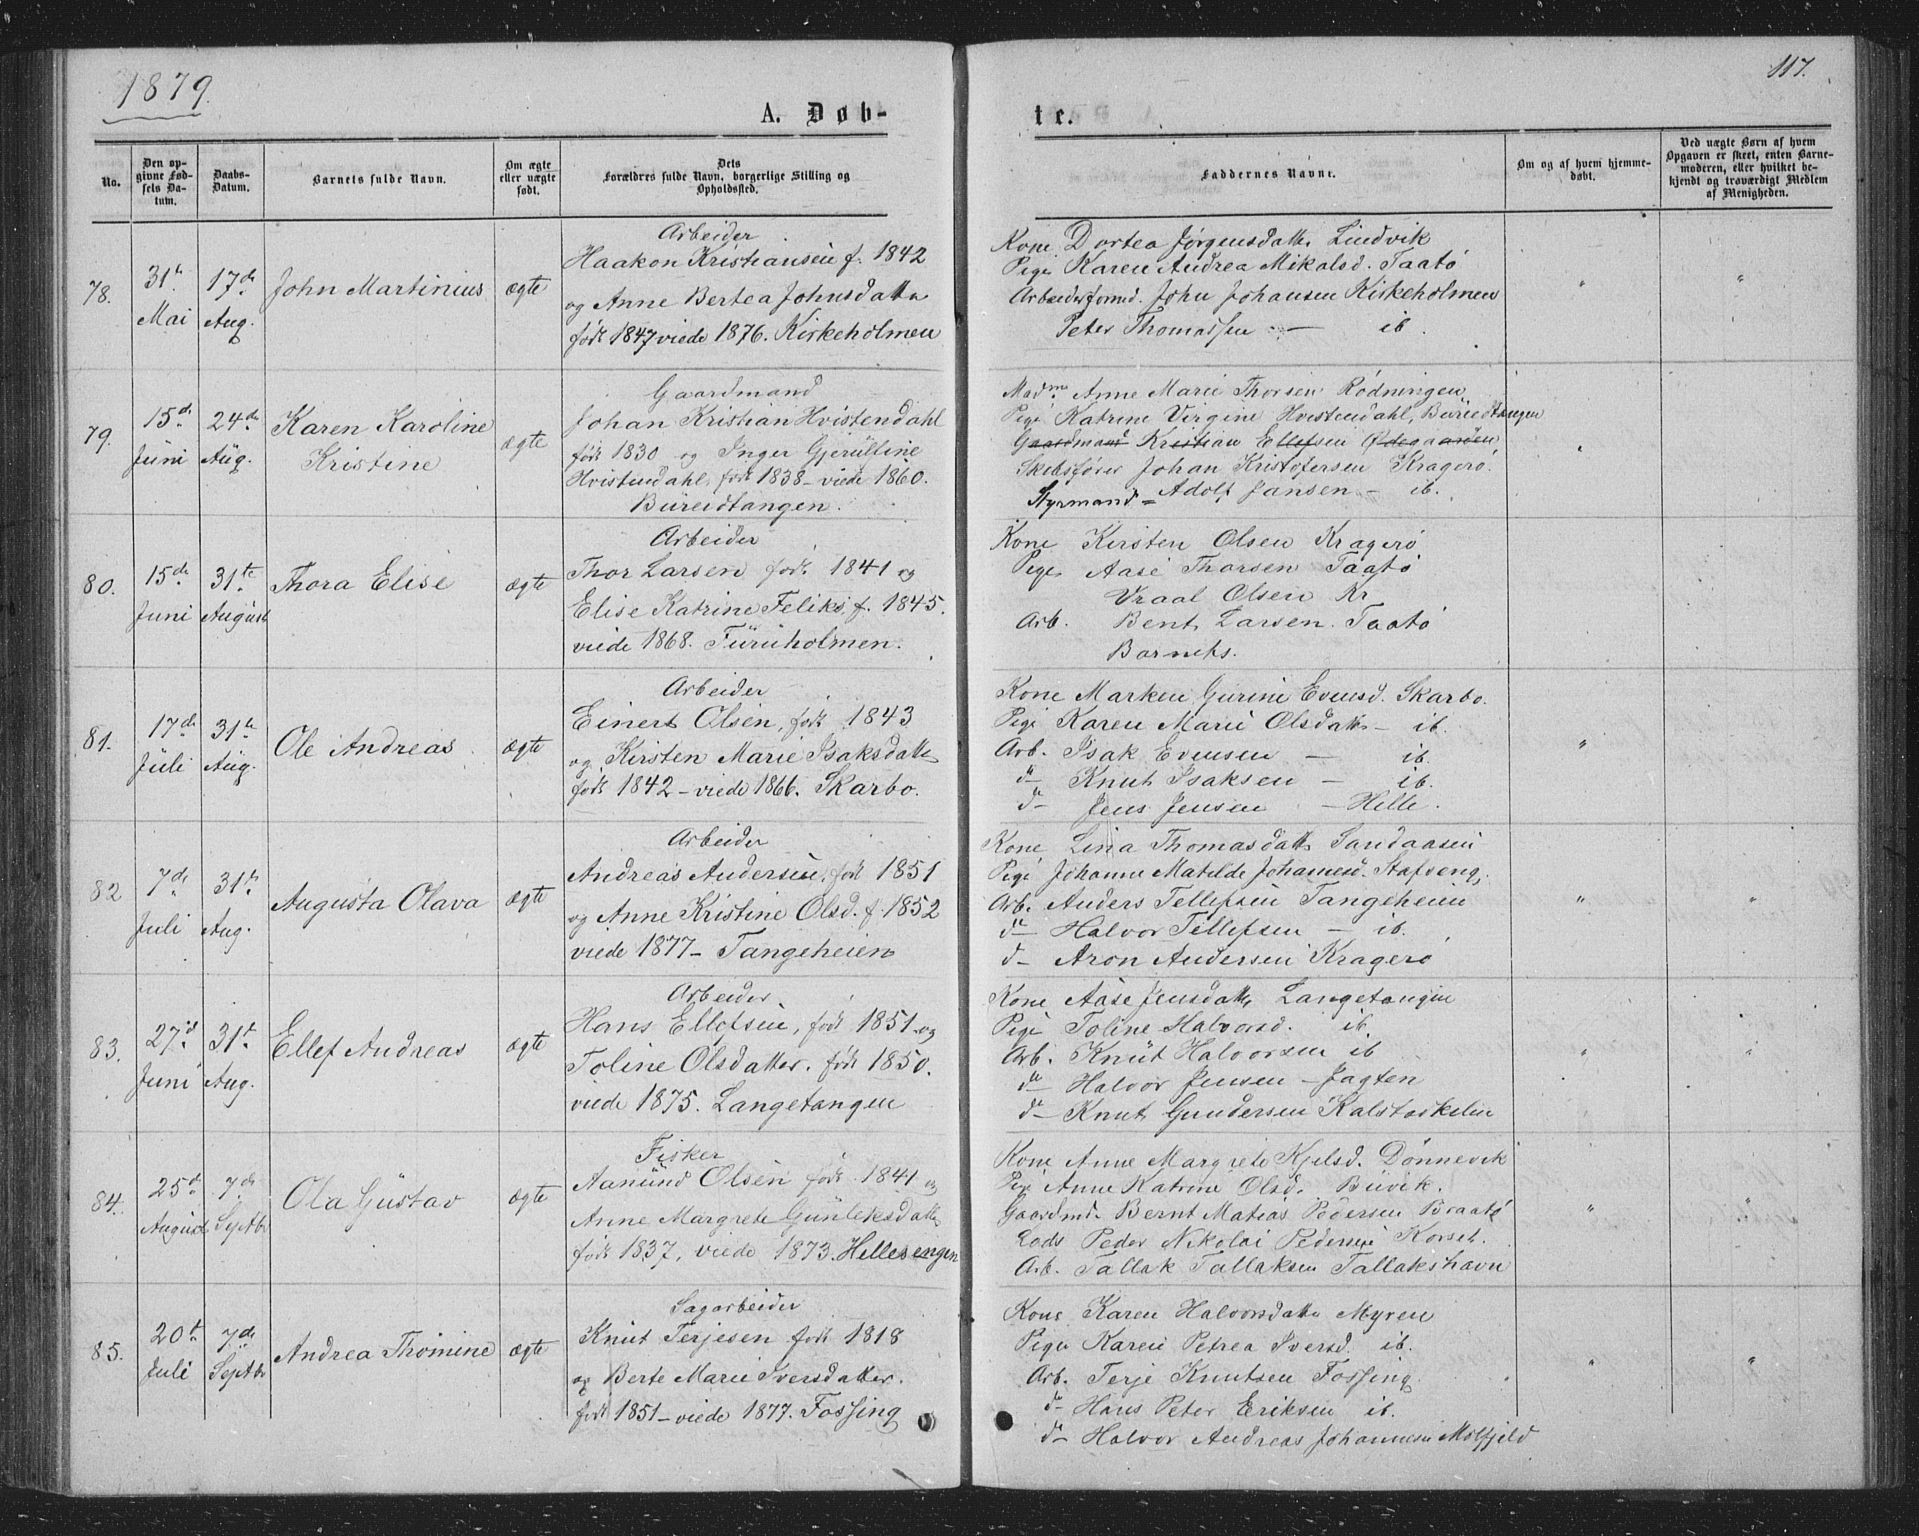 1879
117.
A. Døb-
te.
No.
Den opgivne Fødsels Datum.
Daabs-Datum.
Barnets fulde Navn.
Om ægte eller uægte født.
Dets Forældres fulde Navn, borgerlige Stilling og Opholdssted.
Faddernes Navne.
Om og af hvem hjemmedøbt.
Ved uægte Børn af hvem Opgaven er skeet, enten Barnemoderen, eller hvilket bekjendt og troværdigt Medlem af Menigheden.
78.
31te Mai
17de Aug.
John Martinius
ægte
Arbeider
Haakon Kristiansen f. 1842
og Anne Bertea Johnsdatter
født 1847 viede 1876. Kirkeholmen
Kone Dortea Jørgensdatt. Lindvik
Pige Karen Andrea Mikalsd. Taatø
Arbeiderformd. John Johansen Kirkeholmen
Peter Thomassen — ib
79.
15de Juni
24de Aug.
Karen Karoline
Kristine
ægte
Gaardmand
Johan Kristian Hvistendahl
født 1830 og Inger Gjerultine
Hvistendahl, født 1838 – viede 1860.
Büreidtangen.
Madme Anne Marie Thorsen Rødningen
Pige Katrine Virgine Hvistendahl, Büreidtangen
Gaardmand Kristian Ellefsen Ødegaarden
Skibsfører Johan Kristofersen Kragerø.
Styrmand – Adolf Jansen – ib.
80.
15de Juni
31te August
Thora Elise
ægte
Arbeider
Thor Larsen født 1841 og
Elise Katrine Feliks, f. 1845.
viede 1868. Furuholmen.
Kone Kirsten Olsen Kragerø
Pige Aase Thorsen Taatø
Vraal Olsen Kr
Arb. Bent Larsen. Taatø
Barnets.
81.
17de Juli
31te Aug.
Ole Andreas
ægte
Arbeider
Einert Olsen, født 1843
og Kirsten Marie Isaksdatter
født 1842 – viede 1866. Skarbo.
Kone Marken Gurine Evensd. Skarbo.
Pige Karen Marie Olsdatt – ib.
Arb. Isak Evensen — ib.
do Knut Isaksen — ib.
do Jens Jensen – Helle.
82
7de Juli
31te Aug.
Augusta Olava
ægte
Arbeider
Andreas Andersen, født 1851
og Anne Kristine Olsd. f. 1852
viede 1877 – Tangeheien
Kone Lina Thomasdatt. Sandaasen
Pige Johanne Matilde Johannesd. Stafseng,
Arb. Anders Tellefsen Tangeheien
do Halvor Tellefsen — ib.
do Aron Andersen Kragerø
83.
27de Juni
31te Aug.
Ellef Andreas
ægte
Arbeider
Hans Ellefsen, født 1851 og
Toline Olsdatter. født 1850.
viede 1875. Langetangen
Kone Aase Jensdatt. Langetangen
Pige Toline Halvorsd. ib.
Arb. Knut Halvorsen ib
do Halvor Jensen – Jagten
do Knut Gundersen Kalstaskelen
84.
25de August
7de Septbr
Ola Güstav
ægte
Fisker
Aanünd Olsen født 1841 og
Anne Margrete Günleksdatter
født 1837, viede 1873. Hellesengen
Kone Anne Margrete Kjelsd. Dønnevik
Pige Anne Katrine Olsd. Buvik.
Gaardmd. Bernt Matias Pedersen Braatø
Lods Peder Nikolai Pedersen Korset.
Arb. Tallak Tallaksen Tallakshavn
85.
20de Juli
7de Septbr
Andrea Thomine
ægte
Sagarbeider
Knut Terjesen født 1818
og Berte Marie Iversdatter.
født 1851 – viede 1877. Fossing
Kone Karen Halvorsdatter Myren
Pige Karen Petrea Iversd. ib.
Arb. Terje Knutsen Fossing
do Hans Peter Eriksen ib.
do Halvor Andreas Johannesen Molfjeld